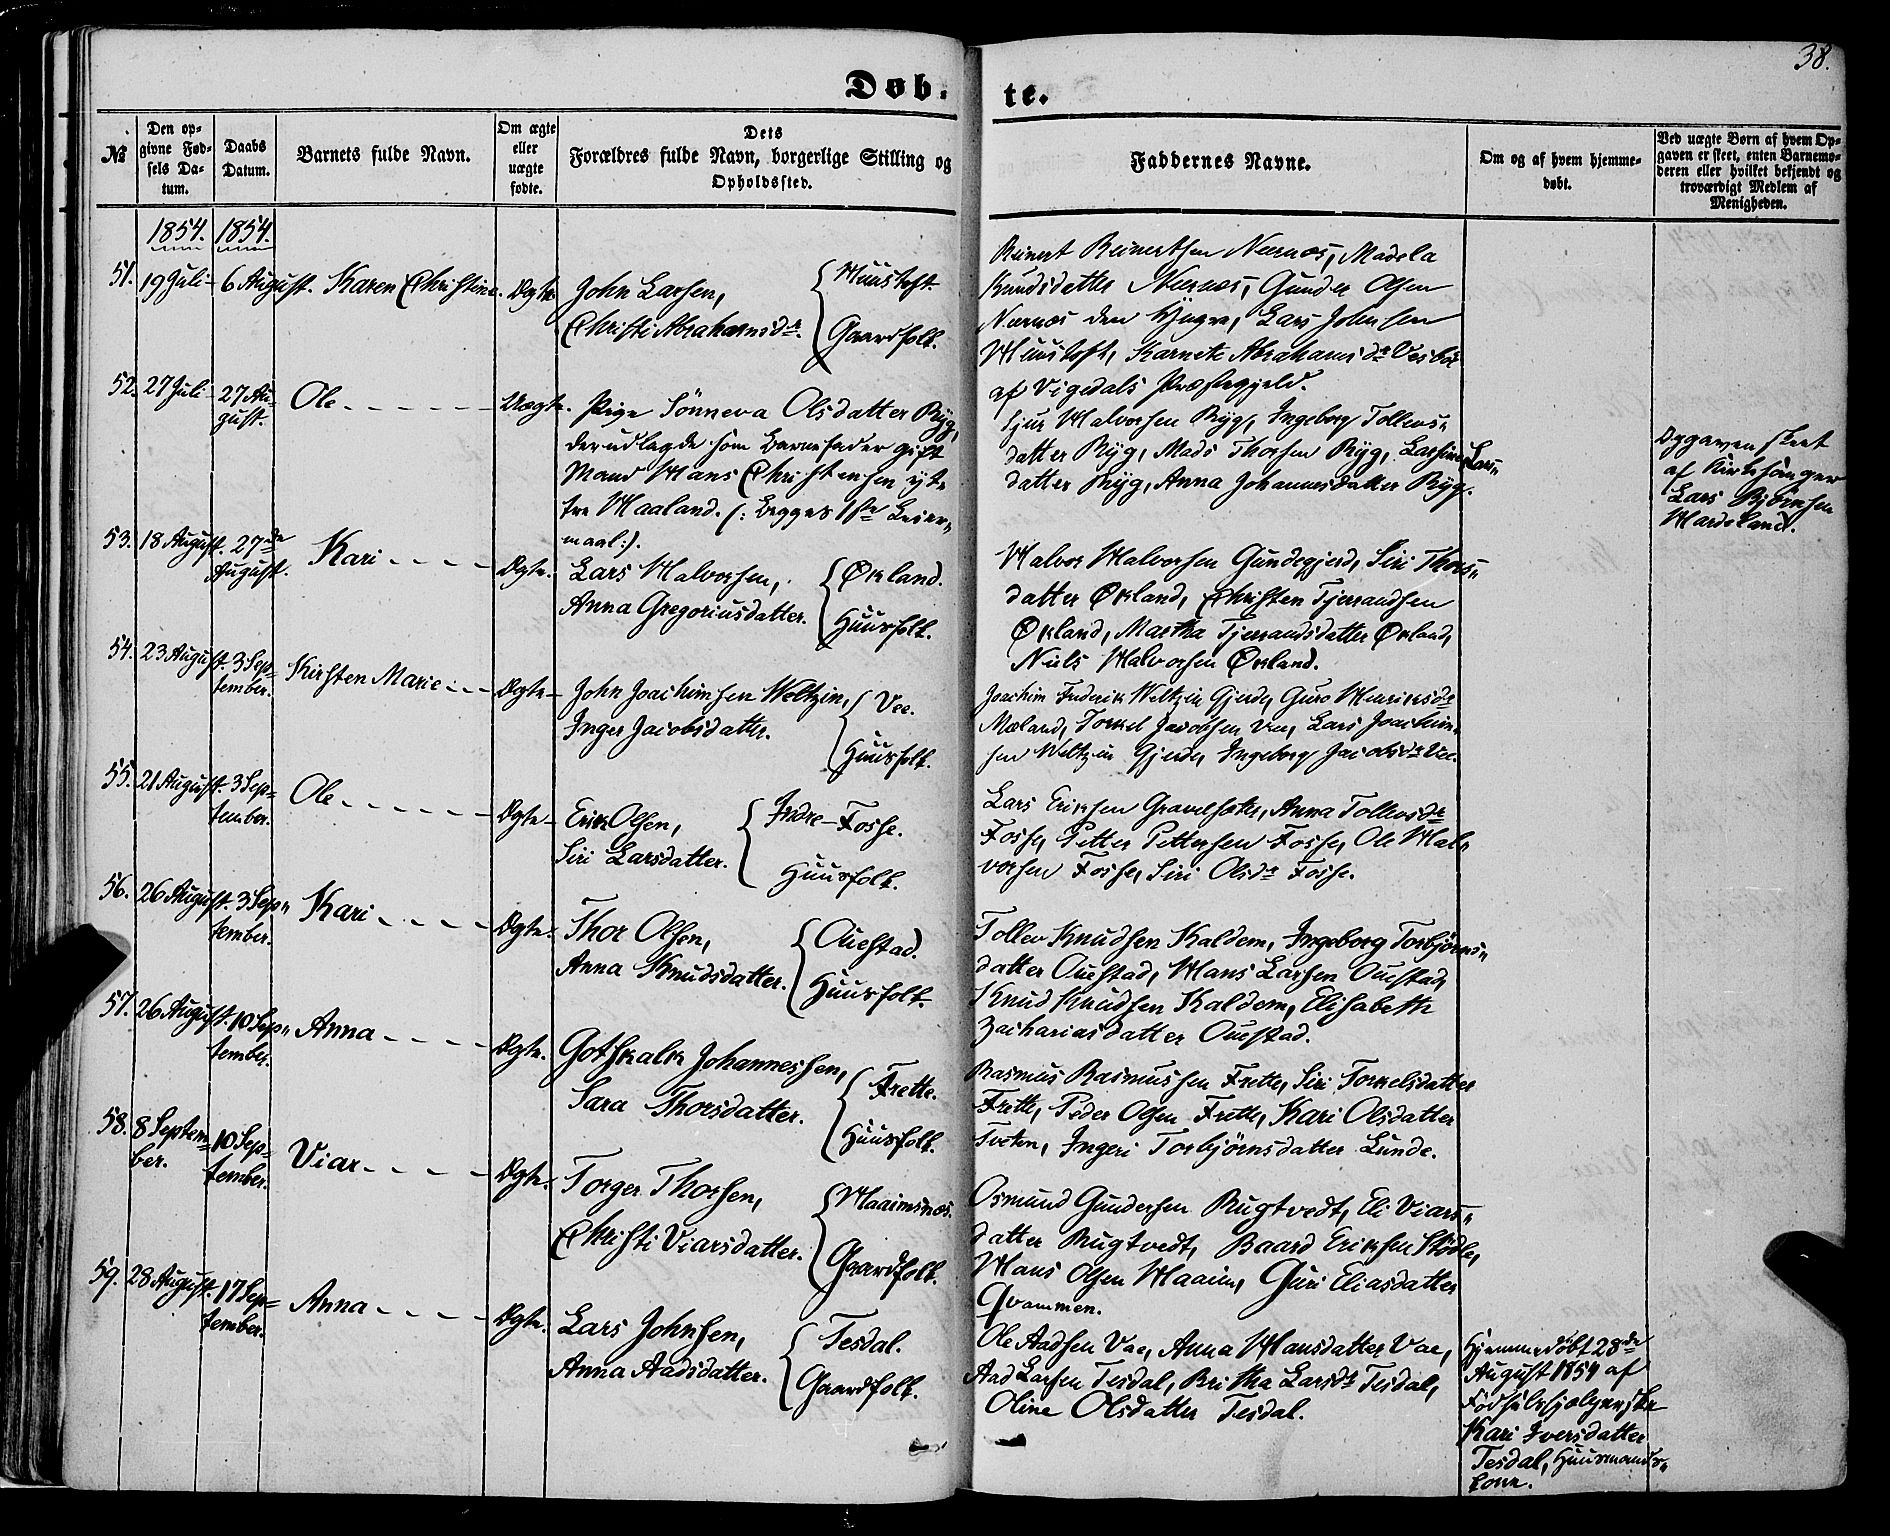 38.
Døb-te.
№
Den op-
givne Fød-
sels Da-
tum.
Daabs
Datum.
Barnets fulde Navn.
Om ægte
eller
uægte
fødte.
Dets
Forældres fulde Navn, borgerlige Stilling og
Opholdssted.
Faddernes Navne.
Om og af hvem hjemme-
døbt.
Ved uægte Børn af hvem Op-
gaven er skeet, enten Barnemo-
deren eller hvilket bekjendt og
troværdigt Medlem af
Menigheden.
1854. 1854.
51. 19 Juli- 6 August. Karen Christine. Ægte
John Larsen,
Christi Abrahamsdr.
Muustoft
Gaardfolk.
Reinert Reinertsen Nernæs, Madela
Knudsdatter Nernæs, Gunder Olsen
Nernæs den Yngre, Lars Johnsen
Muustoft, Karnete Abrahamsdr
af Vigedals Præstegjeld.
52. 27 Juli- 27 Au-
gust.
Ole - - - - - Uægte.
Pige Sønneva Olsdatter Ryg,
der udlagde som Barnefader gift
Mand Hans Christensen yt-
tre Haaland. (: Begges 1ste Leier-
maal:).
Sjur Halvorsen Ryg, Ingeborg Tollevs-
datter Ryg, Mads Thorsen Ryg, Lars-
datter Ryg, Anna Johannesdatter Ryg.
Opgaven skeet
af Kirkesanger
Lars Bjørnsen
Hardeland.
53. 18 August. 27de
August.
Kari - - - - Ægte.
Lars Halvorsen,
Anna Gregoriusdatter.
Økland.
Huusfolk.
Halvor Halvorsen Gundegjerd, Siri Thors-
datter Økland, Christen Tjerrandsen
Økland, Martha Tjerrandsdatter Økland,
Niels Halvorsen Økland.
54. 23 August. 3 Sep-
tember.
Kirsten Marie - - - Ægte-
John Joachimsen Weltzin,
Inger Jacobsdatter.
Vee.
Huusfolk.
Joachim Frederik Weltzin Gjerde, Guro Henriksdr
Mæland, Torkel Jacobsen Vee, Lars Joachim-
sen Weltzin Gjerde, Ingeborg Jacobsdr Vee.
55. 21 August. 3 Sep-
tember.
Ole - - - - - Ægte-
Erik Olsen,
Siri Larsdatter.
Indre-Fosse.
Huusfolk.
Lars Eriksen Gravelsæter, Anna Tollevsdr
Fosse, Petter Pettersen Fosse, Ole Hal-
vorsen Fosse, Siri Olsdr Fosse.
56. 26 August. 3 Sep-
tember.
Kari - - - - Ægte.
Thor Olsen,
Anna Knudsdatter.
Ouestad.
Huusfolk.
Tollev Knudsen Kaldem, Ingeborg Torbjørns-
datter Ouestad, Hans Larsen Ouestad,
Knud Knudsen Kaldem, Elisabeth
Zachariasdatter Ouestad.
57. 26 August. 10 Sep-
tember.
Anna - - - - Ægte.
Gotskalk Johannessen,
Sara Thorsdatter.
Frette.
Huusfolk.
Rasmus Rasmussen Frette, Siri Torkelsdatter
Frette, Peder Olsen Frette, Kari Olsdatter
Tveten, Ingeri Torbjørnsdatter Lunde.
58. 8 Septem-
ber.
10 Sep-
tember.
Viar - - - - Ægte.
Torger Thorsen,
Christi Viarsdatter.
Haaimsnæs.
Gaardfolk.
Osmund Gundersen Rugtvedt, Eli Viars-
datter Rugtvedt, Baard Eriksen Stødle,
Hans Olsen Haaim, Guri Eliasdatter
Qvammen.
59. 28 August. 17 Sep-
tember.
Anna - - - - Ægte.
Lars Johnsen,
Anna Aadsdatter.
Tesdal.
Gaardfolk.
Ole Aadsen Vae, Anna Hansdatter Vae,
Aad Larsen Tesdal, Britha Larsdr Tesdal,
Oline Olsdatter Tesdal.
Hjemmedøbt 28de
August 1854 af
Fødselshjelperske
Kari Iversdatter
Tesdal, Huusmands-
kone.